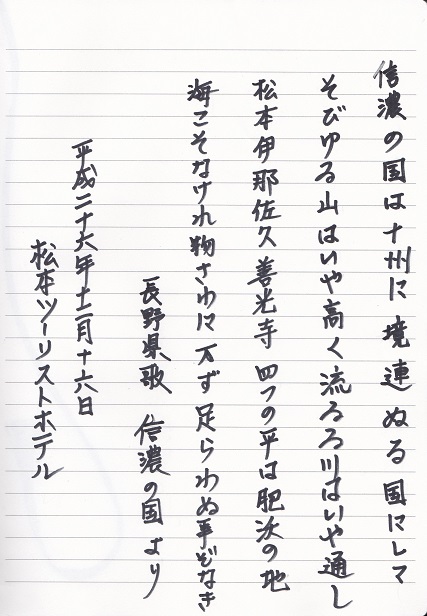 信濃の国は十州に境連ぬる国にレマ
そびゆる山はいや高く流るる川はいや通し
松本伊那佐久善光寺四つの平は肥沃の地
海こそなけれ物さわに万ず足らわぬ事ぞなき
長野県歌 信濃の国より
平成二十六年十二月十六日
松本ツーリストホテル